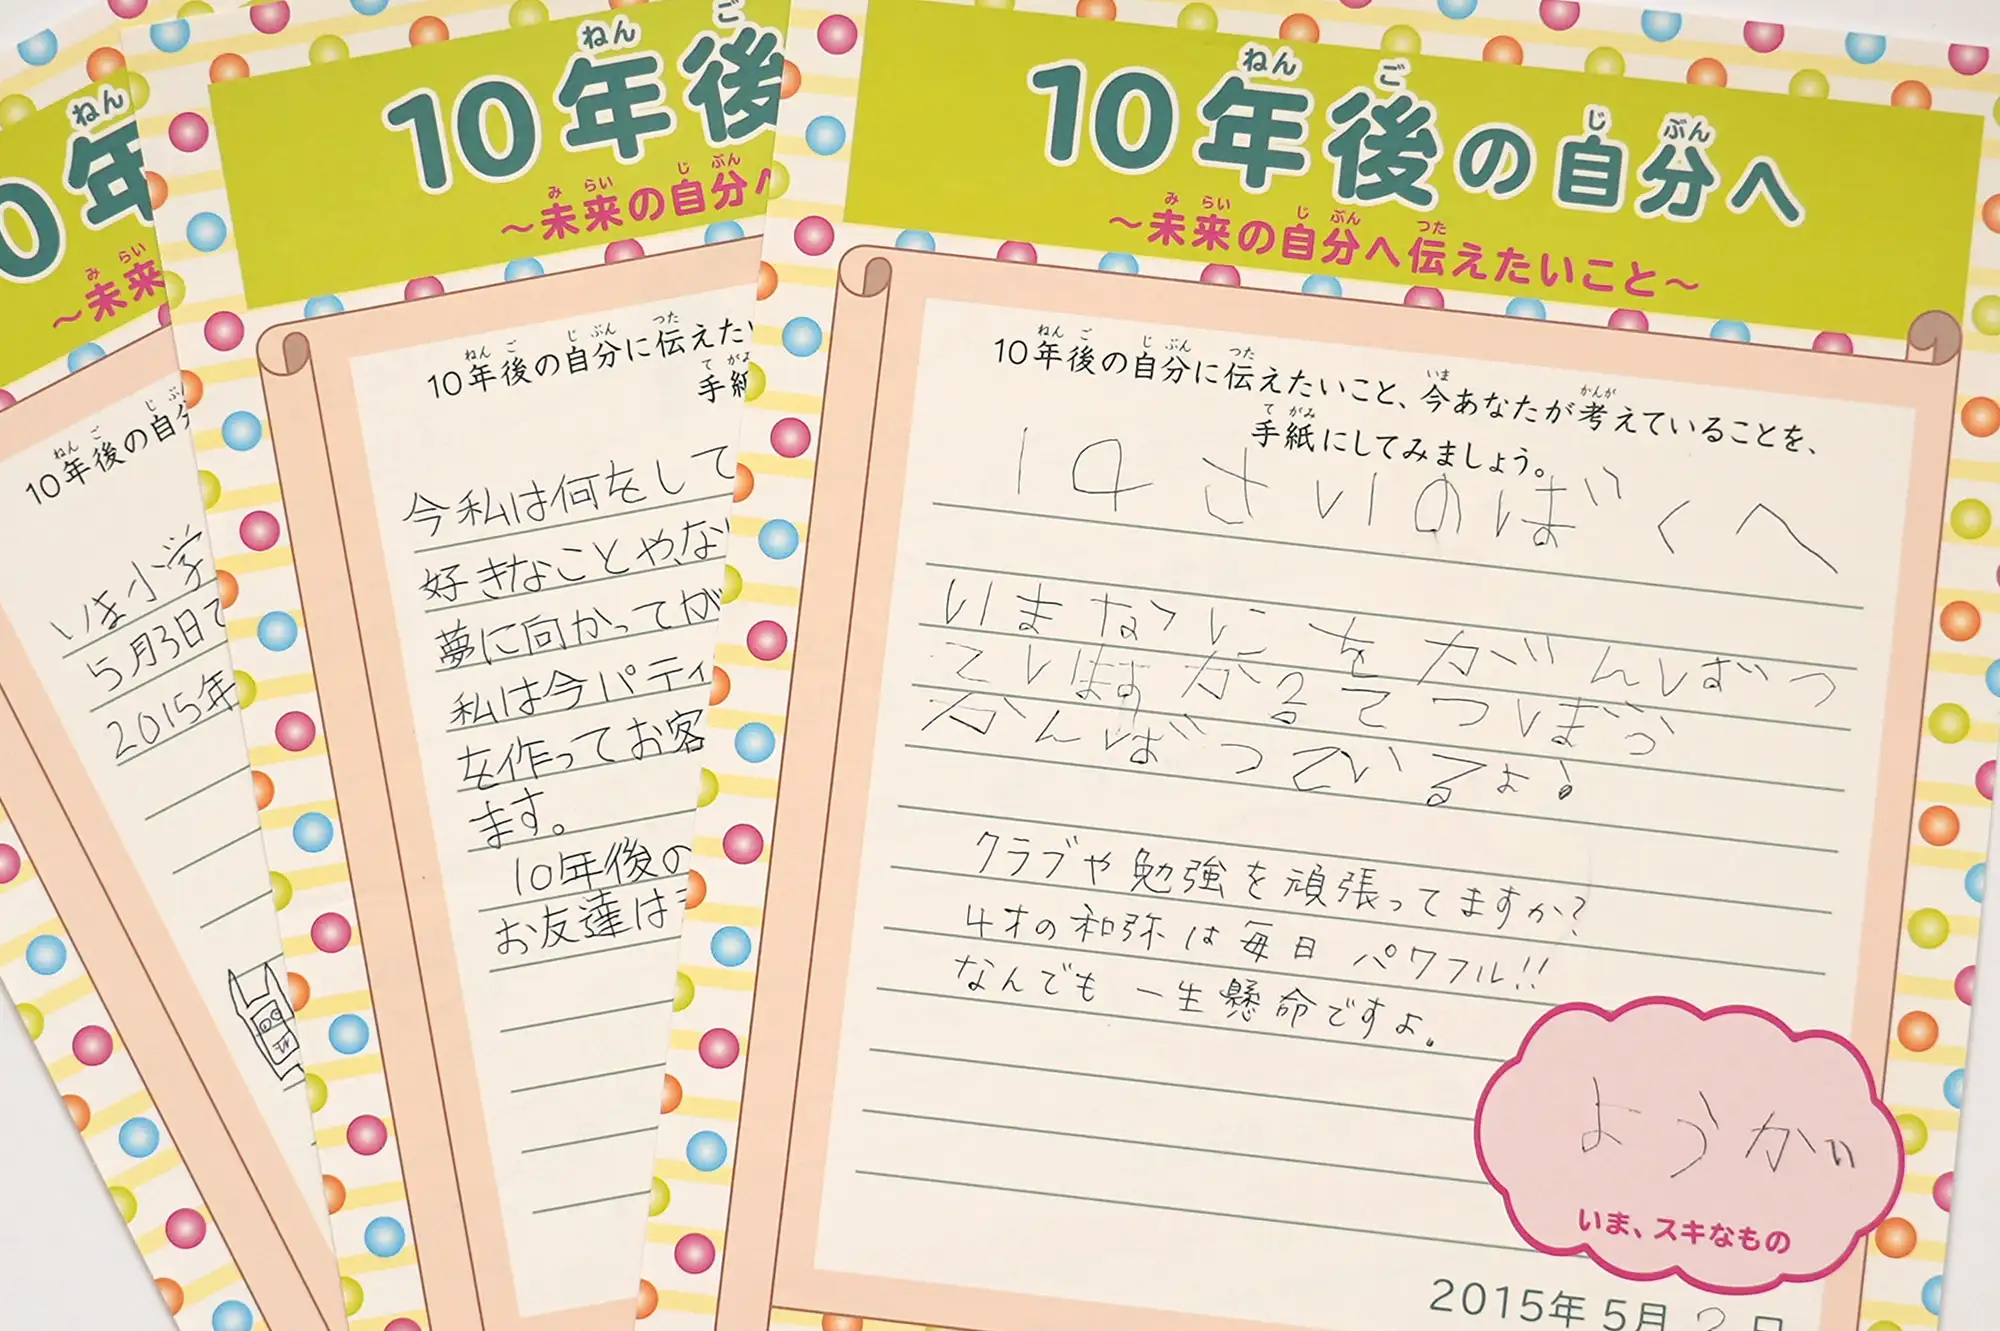 0年
ねん
～未来
み らい
10年後の自分
ねん ご じ ぶ
いま小学
5月3日で
2015年
10年後
ねん ご
～未来の自分へ
み らい じ ぶん
10年後の自分に伝えた
ねん ご じ ぶん つた
手紙
て がみ
今私は何をして
好きなことや、な
夢に向かってが
私は今パティ
を作ってお客
ます。
10年後の
お友達は
10年後の自分へ
ねん ご じ ぶん
～未来の自分へ伝えたいこと～
み らい じ ぶん つた
10年後の自分に伝えたいこと、今あなたが考えていることを、
ねん ご じ ぶん つた いま かんが
手紙にしてみましょう。
て がみ
14さいのぼくへ
いまなにをがんばっ
ていますかるてつぼう
がんばっているよ!
クラブや勉強を頑張ってますか?
4才の和弥は毎日パワフル!!
なんでも一生懸命ですよ。
ようかい
いま、スキなもの
2015年5月 日